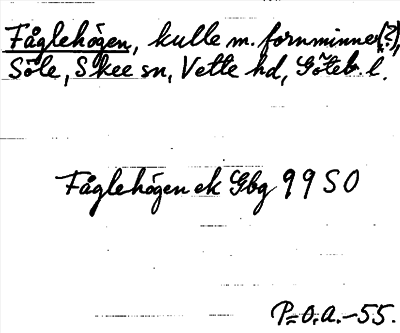 Fåglehögen, kulle m. fornminne(?),
Söle, Skee sn, Vette hd, Göteb. l.
Fåglehögen ek Gbg 99 SO
P=O.A.-55.